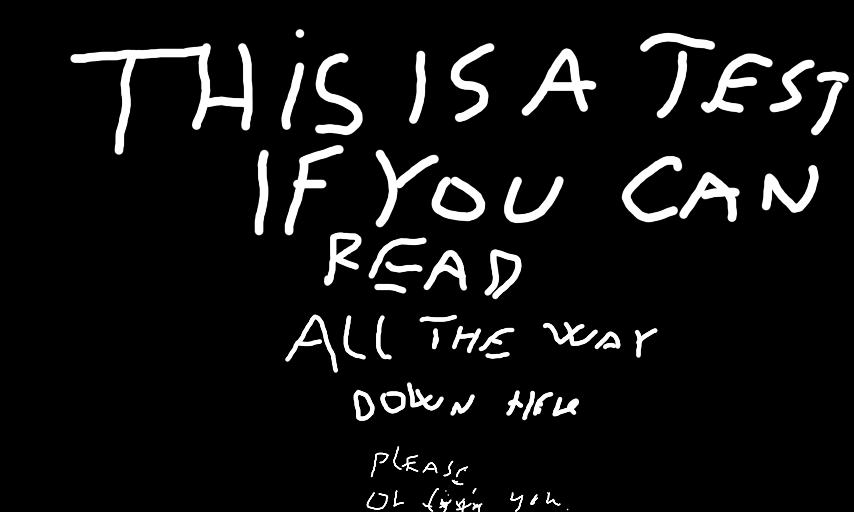 THiS IS A TEST
IF YOU CAN
READ
ALL THE WAY
DOWN HERE
PLEASE
you